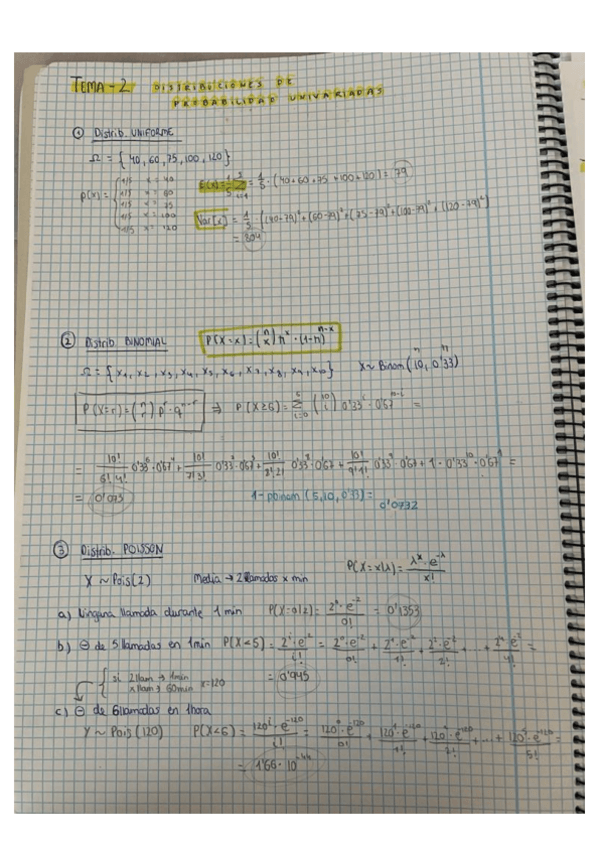 TEMA-2 DISTRIBUCIONES DE
PROBABILIDAD UNIVARIADAS
① Distrib. UNIFORME
Ω = { 40, 60, 75, 100, 120 }
p(x) = { 1/5 x = 40
1/5 x = 60
1/5 x = 75
1/5 x = 100
1/5 x = 120
= 1/5 · (40+60+75+100+120) = 79
Var[x] = 1/5 · [(40-79)² + (60-79)² + (75-79)² + (100-79)² + (120-79)²]
= 804
② Distrib BINOMIAL P(X=x) = (n x) π^x · (1-π)^(n-x)
Ω = { x₁, x₂, x₃, x₄, x₅, x₆, x₇, x₈, x₉, x₁₀ } X ~ Binom (10, 0'33)
P(X=r) = (n r) · p^r · q^(n-r) ⇒ P(X≥6) = Σ (10 i) 0'33^i · 0'67^(n-i) =
= 10!/6!4! 0'33⁶ · 0'67⁴ + 10!/7!3! 0'33⁷ · 0'67³ + 10!/8!2! 0'33⁸ · 0'67² + 10!/9!1! 0'33⁹ · 0'67 + 1 · 0'33¹⁰ · 0'67 =
= 0'073 1-pbinom (5, 10, 0'33) = 0'0732
③ Distrib. POISSON
X ~ Pois(2) Media → 2 llamadas x min P(X=x|λ) = λ^x · e^-λ / x!
a) Ninguna llamada durante 1 min P(X=0|2) = 2⁰ · e⁻² / 0! = 0'1353
b) ⊖ de 5 llamadas en 1min P(X<5) = 2^i · e⁻² / i! = 2⁰ · e⁻² / 0! + 2¹ · e⁻² / 1! + 2² · e⁻² / 2! + ... + 2⁴ · e⁻² / 4! =
= 0'945
{ si 2 llam → 1min
x llam → 60min x=120
c) ⊖ de 6 llamadas en 1 hora
Y ~ Pois (120) P(X<6) = 120^i · e^-120 / i! = 120⁰ · e^-120 / 0! + 120¹ · e^-120 / 1! + 120² · e^-120 / 2! + ... + 120⁵ · e^-120 / 5! =
= 1'66 · 10^-44